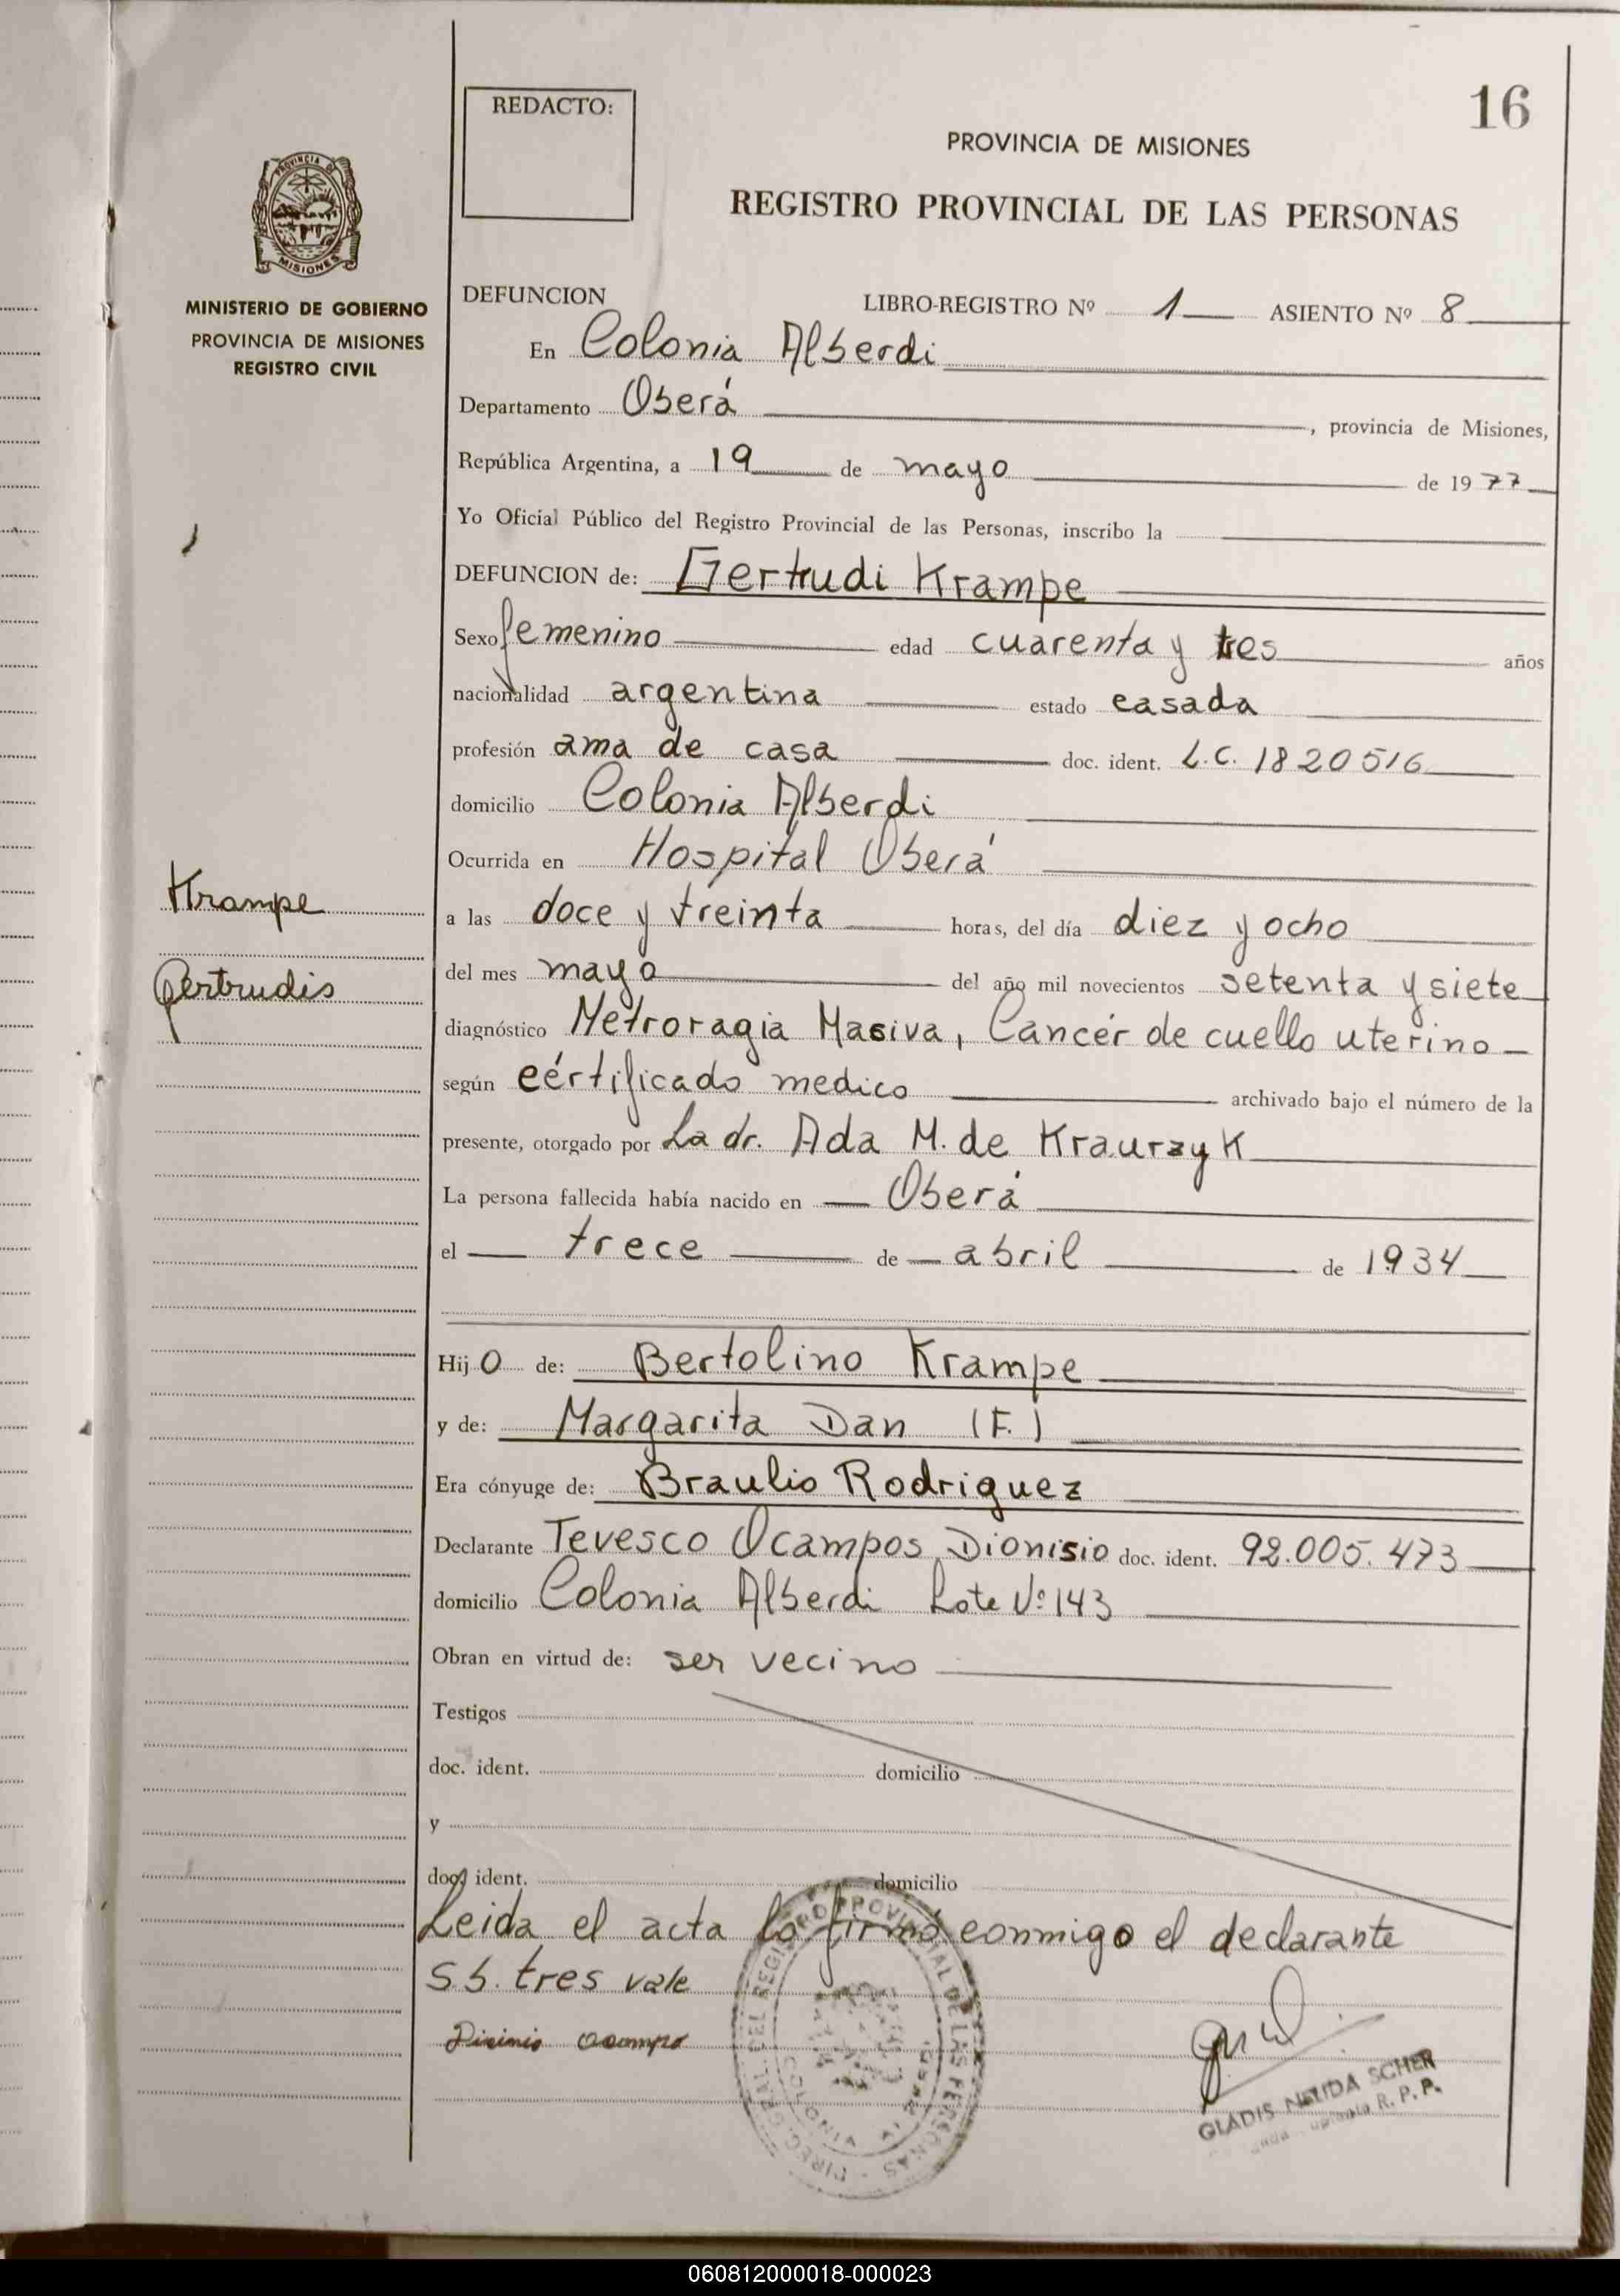 16
REDACTO:
PROVINCIA DE MISIONES
REGISTRO PROVINCIAL DE LAS PERSONAS
PROVINCIA DE
MISIONES
MINISTERIO DE GOBIERNO
PROVINCIA DE MISIONES
REGISTRO CIVIL
DEFUNCION LIBRO-REGISTRO Nº 1 ASIENTO Nº 8
En Colonia Alberdi
Departamento Oberá , provincia de Misiones,
República Argentina, a 19 de mayo de 1977
Yo Oficial Público del Registro Provincial de las Personas, inscribo la
DEFUNCION de: Gertrudi Krampe
Sexo femenino edad cuarenta y tres años
nacionalidad argentina estado casada
profesión ama de casa doc. ident. L.C. 1820516
domicilio Colonia Alberdi
Ocurrida en Hospital Oberá
Krampe
Gertrudis
a las doce y treinta horas, del día diez y ocho
del mes mayo del año mil novecientos setenta y siete
diagnóstico Metroragia Masiva, Cancér de cuello uterino
según cértificado medico archivado bajo el número de la
presente, otorgado por La dr. Ada M. de Kraurzyk
La persona fallecida había nacido en Oberá
el trece de abril de 1934
Hijo de: Bertolino Krampe
y de: Margarita Dan (F.)
Era cónyuge de: Braulio Rodriguez
Declarante Tevesco Ocampos Dionisio doc. ident. 92.005.473
domicilio Colonia Alberdi Lote Nº 143
Obran en virtud de: ser vecino
Testigos
doc. ident. domicilio
y
doc. ident. domicilio
Leida el acta la firmó conmigo el declarante
S.b. tres vale
ocampo
DIREC. GRAL. DEL REGISTRO PROVINCIAL DE LAS PERSONAS
COLONIA ALBERDI
GLADIS NELIDA SCHER
R. P. P.
060812000018-000023